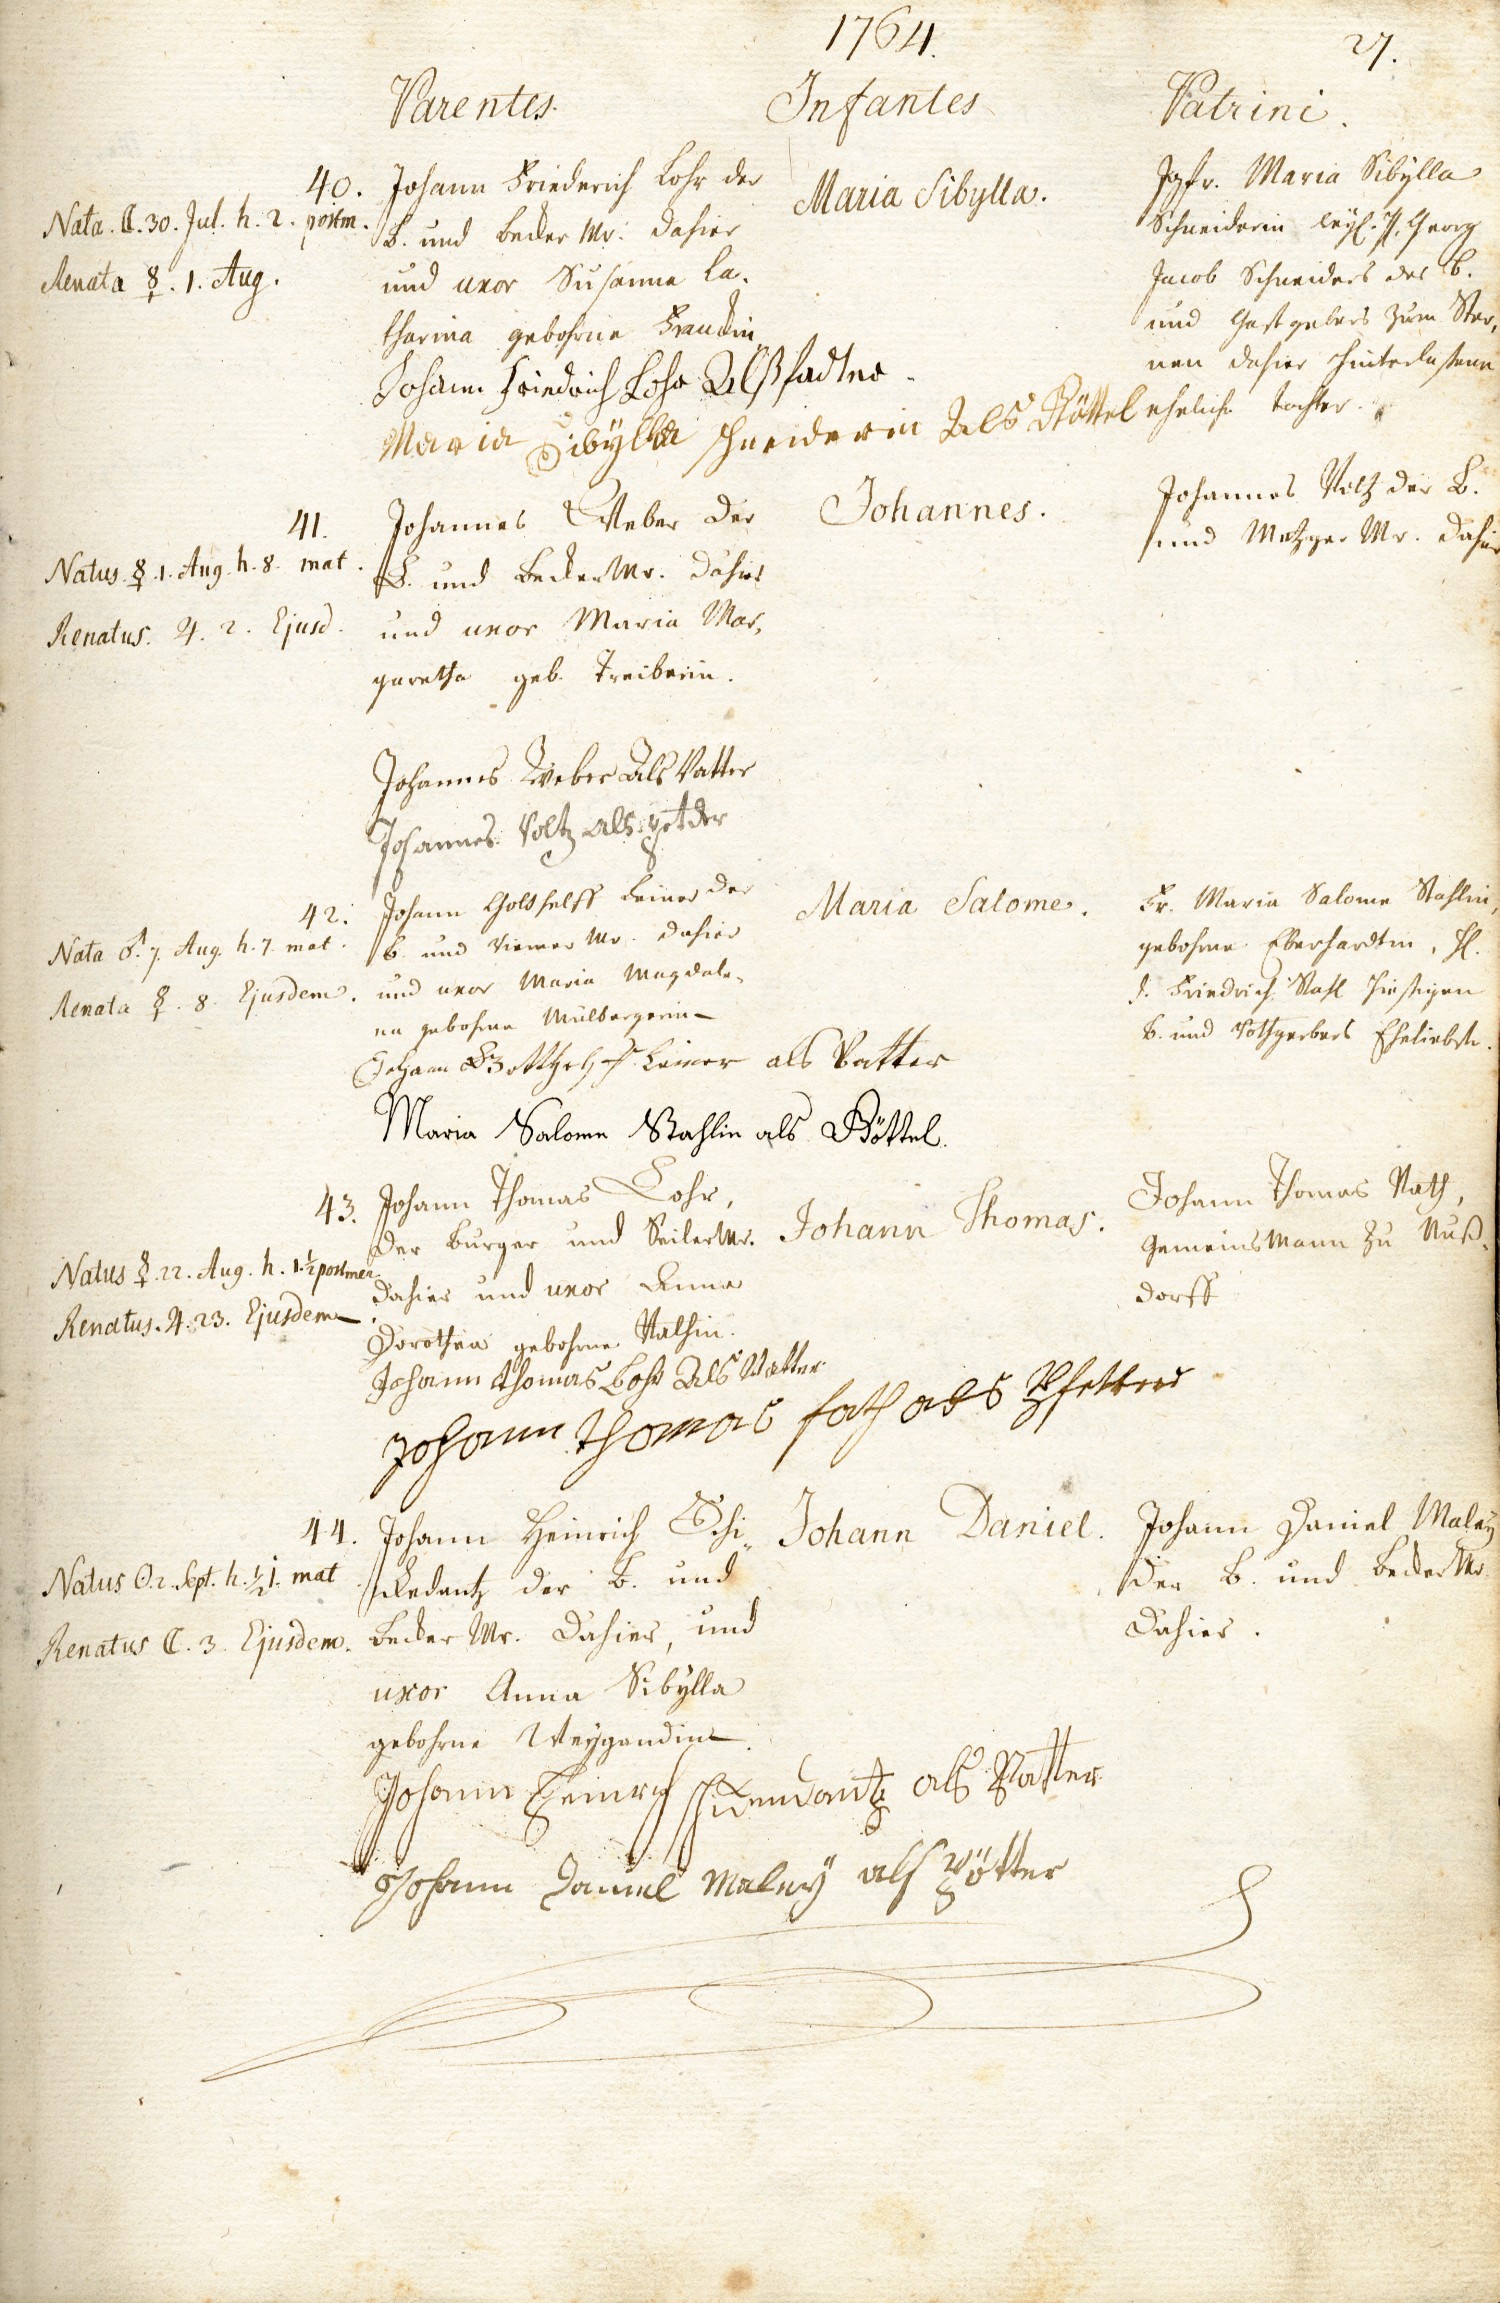 1764.
27.
Parentes.
Infantes
Patrini.
40.
Nata. ☾. 30. Jul. h. 2. postm.
Renata ☿. 1. Aug.
Johann Friederich Lohr der
B. und Becker Mr. dahier
und uxor Susanna Ca-
tharina gebohrne Franckin
Johann Friedrich Lohr Alß fadter
Maria Sibylla schneiderin Als Göttel
Maria Sibylla.
Jgfr. Maria Sibylla
Schneiderin Georg
Jacob Schneiders des B.
und Gastgebers zum Ster-
nen dahier hinterlaßene
eheliche tochter.
41.
Natus ☿. 1. Aug. h. 8. mat.
Renatus. ♃. 2. Ejusd.
Johannes Weber der
B. und Becker Mr. dahier
und uxor Maria Mar-
garetha geb. Treiberin.
Johannes Weber Als Vatter
Johannes Voltz als petder
Johannes.
Johannes Voltz der B.
und Metzger Mr. dahier
42.
Nata ♂. 7. Aug. h. 7. mat.
Renata ☿. 8. Ejusdem.
Johann Gotthelff Leiner der
B. und Riemer Mr. dahier
und uxor Maria Magdale-
na gebohrne Mülbergerin
Johann Gotthelff Leiner als Vatter
Maria Salome Stahlin als Göttel.
Maria Salome.
Fr. Maria Salome Stahlin,
gebohrne Eberhardtin, H.
J. Friedrich Stahl hießigen
B. und Rothgerbers Eheliebste.
43.
Natus ☿. 22. Aug. h. 1. ½ postmer.
Renatus. ♃. 23. Ejusdem
Johann Thomas Lohr,
der Burger und Seiler Mr.
dahier und uxor Anna
Dorothea gebohrne Vathin.
Johann thomas Lohr Als Vatter
Johann thomas fath als Pfetter
Johann Thomas.
Johann Thomas Vath,
Gemeinsmann zu Nuß-
dorff
44.
Natus ☉. 2. Sept. h. ½ 1. mat
Renatus ☾. 3. Ejusdem.
Johann Heinrich Schi-
ckedantz der B. und
Becker Mr. dahier, und
uxor Anna Sibylla
gebohrne Weygandin
Johann Heinrich schickendantz als Vatter
Johann Daniel Maley als Pötter
Johann Daniel.
Johann Daniel Maley
der B. und Becker Mr.
dahier.